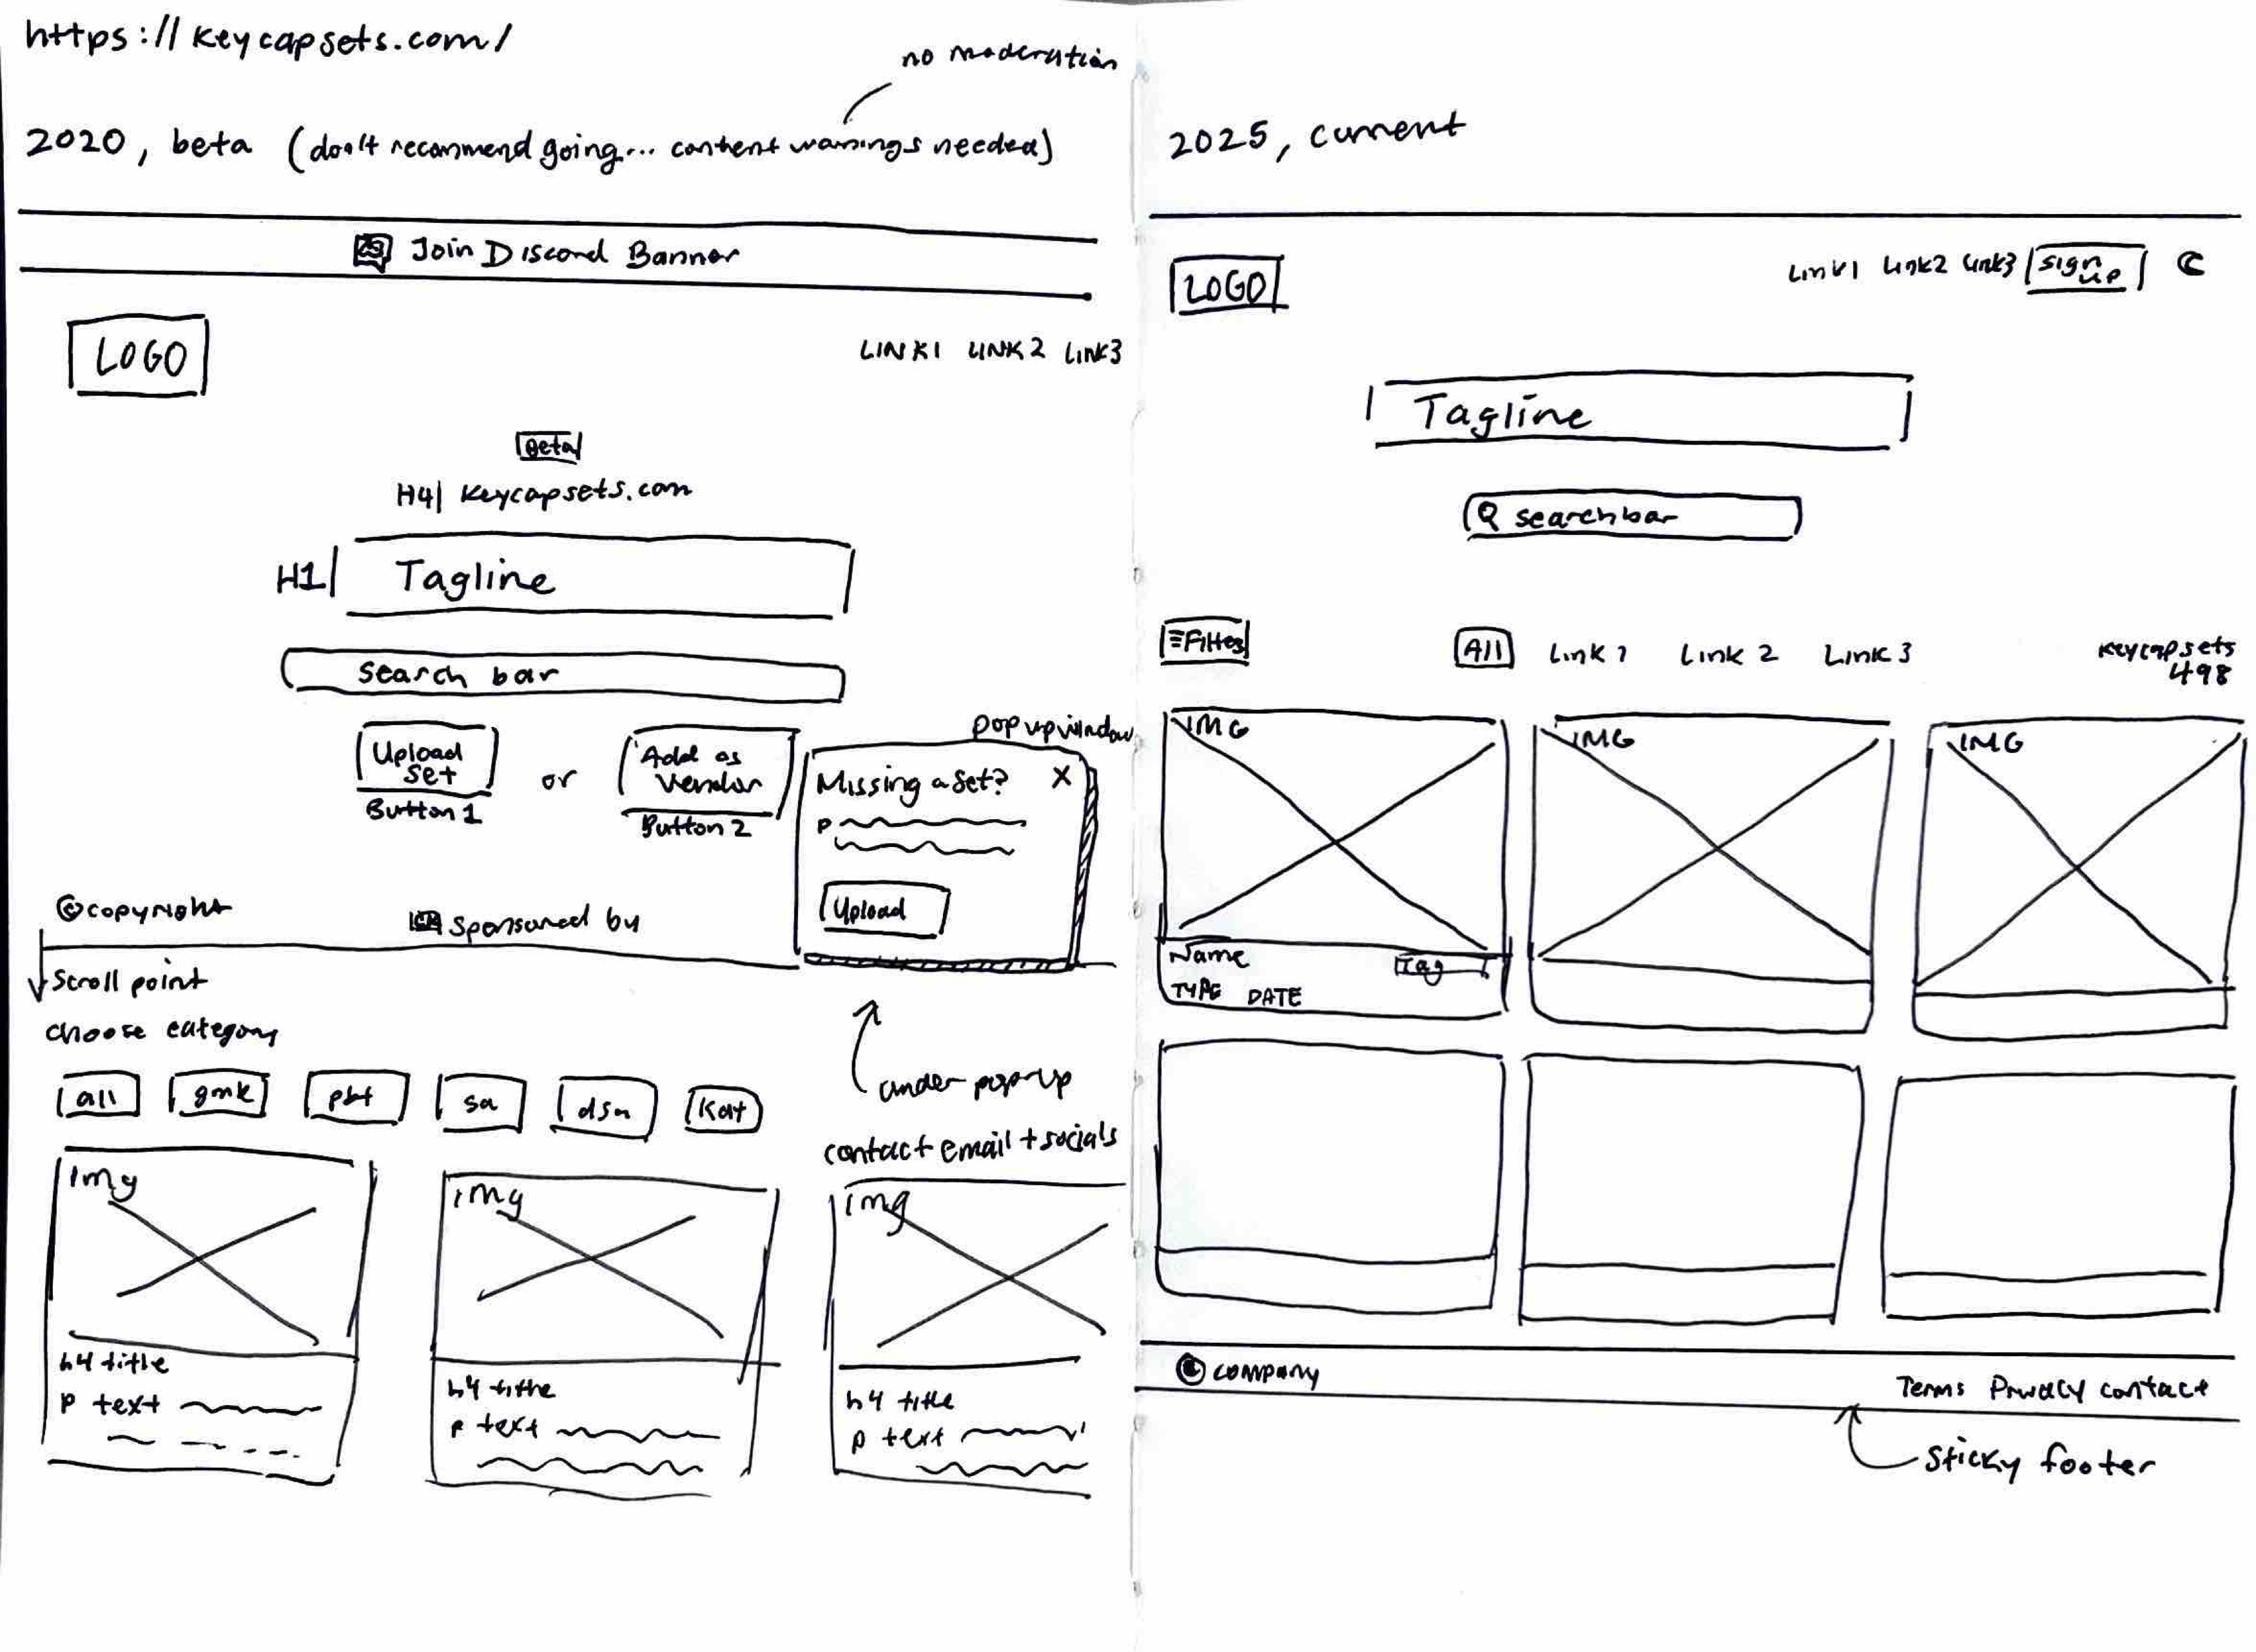 https://keycapsets.com/
no moderation
2020, beta (don't recommend going... content warnings needed)
Join Discord Banner
LOGO
LINK1 LINK2 Link3
Beta
H4| keycapsets.com
H1| Tagline
search bar
Upload
set
Button 1
or
Add as
vendor
Button 2
pop up window
Missing a set? X
P
Upload
© copyright
Sponsored by
Scroll point
choose category
under popup
contact email + socials
all gmk pbt sa dsa Kat
img
h4 title
P text
img
h4 title
P text
img
h4 title
P text
2025, current
LOGO
Link1 Link2 Link3 sign
up
Tagline
searchbar
Filters
All Link 1 Link 2 Link 3
keycapsets
498
IMG
Name Tag
TYPE DATE
IMG
IMG
© company
Terms Privacy contact
Sticky footer